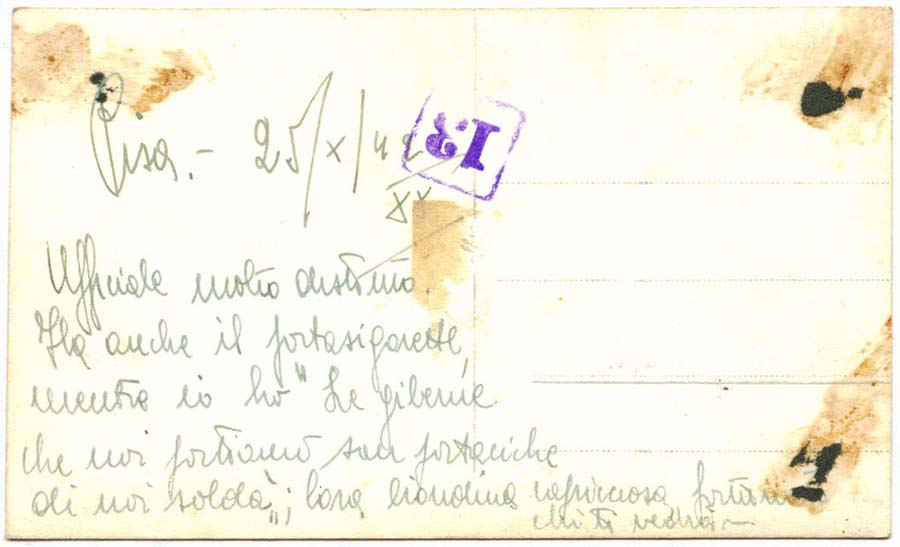 Pisa.- 25/X/42
XX
I3
Ufficiale molto distinto.
Ha anche il portasigarette,
mentre io ho "Le giberne
che noi portiamo son portaciche
di noi soldà"; cara biondina capricciosa
chi ti vedrà -